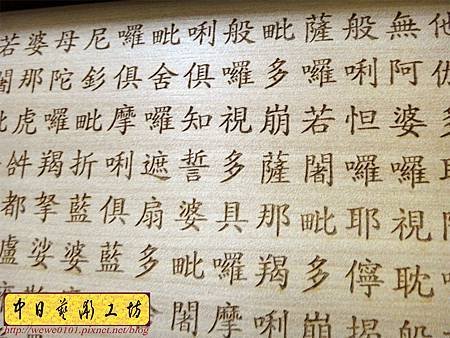 他伽多
無阿婆囉視耽般
般唎怛囉耶儜揭
薩囉若闍毗多崩
毗多崩薩那羯唎
般囉視多具囉摩
唎俱知誓婆毗闍
毗舍囉遮扇多
囉俱摩唎俱藍
尼釤毗折藍婆
母陀囉羯拏娑
婆那虎𤙖都盧
若闍毗
中日藝彫工坊
http://wewe0101.pixnet.net/blog